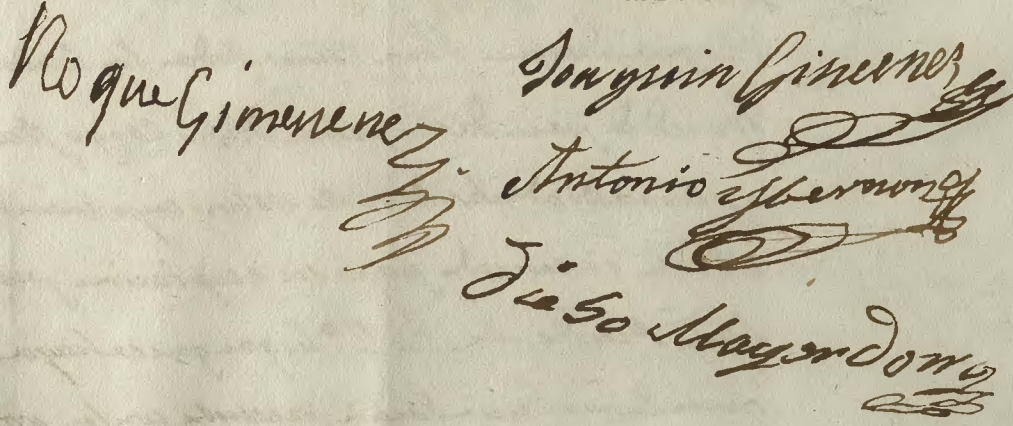 Roque Gimenene
Joaquin Gimenez
Antonio
Diego Mayordomo